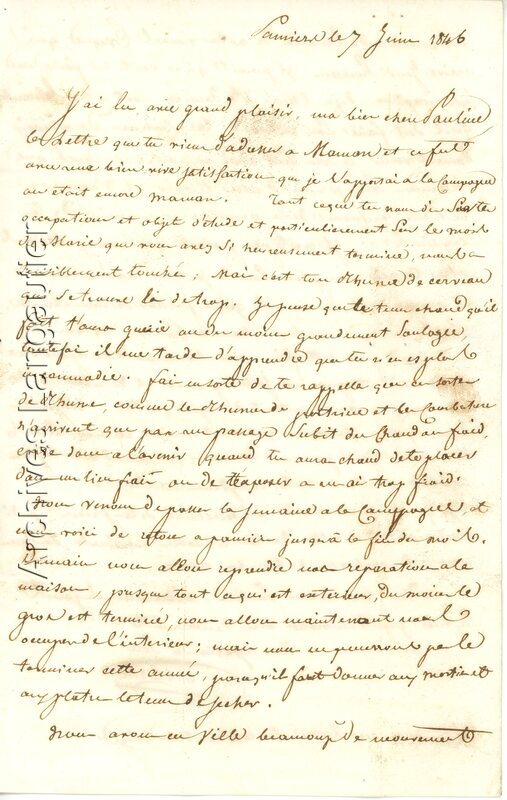 Pamiers le 7 Juin 1846
J'ai lu avec grand plaisir, ma bien chere Pauline
la Lettre que tu viens d'adresser a Maman et ce fut
avec une bien vive satisfaction que je l'apportai a la Campagne
ou etait encore maman. Tout ce que tu nous dis sur tes
occupations et objet d'étude et particulierement sur le mois
de Marie que vous avez si heureusement terminé, nous a
sensiblement touché; mais c'est ton Rhume de cerveau
qui se trouve là de trop. Je pense que le tems chaud qu'il
fait t'aura guerie ou du moins grandement soulagée
toutefois il me tarde d'apprendre que tu n'en es plus
incommodée. fais ensorte de te rappeller que ces sortes
de Rhume, comme le Rhume de poitrine et les Courbatures
n'arrivent que par un passage subit du Chaud au froid,
evite donc a l'avenir quand tu auras chaud de te placer
dans un lieu frais ou de t'exposer a un air trop froid.
Nous venons de passer la semaine a la Campagne, et
nous voici de retour a pamiers jusqu'à la fin du mois.
Demain nous allons reprendre nos reparations a la
maison, presque tout ce qui est exterieur, du moins le
gros est terminé, nous allons maintenant nous
occuper de l'interieur; mais nous ne pourrons pas le
terminer cette année, parcequ'il faut donner aux mortiers et
aux platres le tems de secher.
Nous avons en Ville beaucoup de mouvement
Archives Langautier